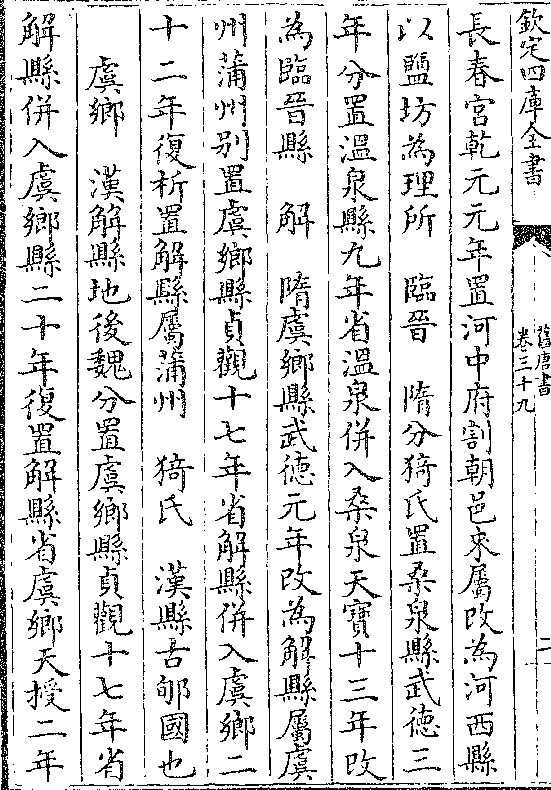 欽定四庫全書
舊唐書
卷三十九
二
長春宮乾元元年置河中府割朝邑來屬改為河西縣
以鹽坊為理所　臨晉　隋分猗氏置桑泉縣武德三
年分置溫泉縣九年省溫泉併入桑泉天寶十三年改
為臨晉縣　解　隋虞鄉縣武德元年改為解縣屬虞
州蒲州别置虞鄉縣貞觀十七年省解縣併入虞鄉二
十二年復析置解縣屬蒲州　猗氏　漢縣古郇國也
虞鄉　漢解縣地後魏分置虞鄉縣貞觀十七年省
解縣併入虞鄉縣二十年復置解縣省虞鄉天授二年